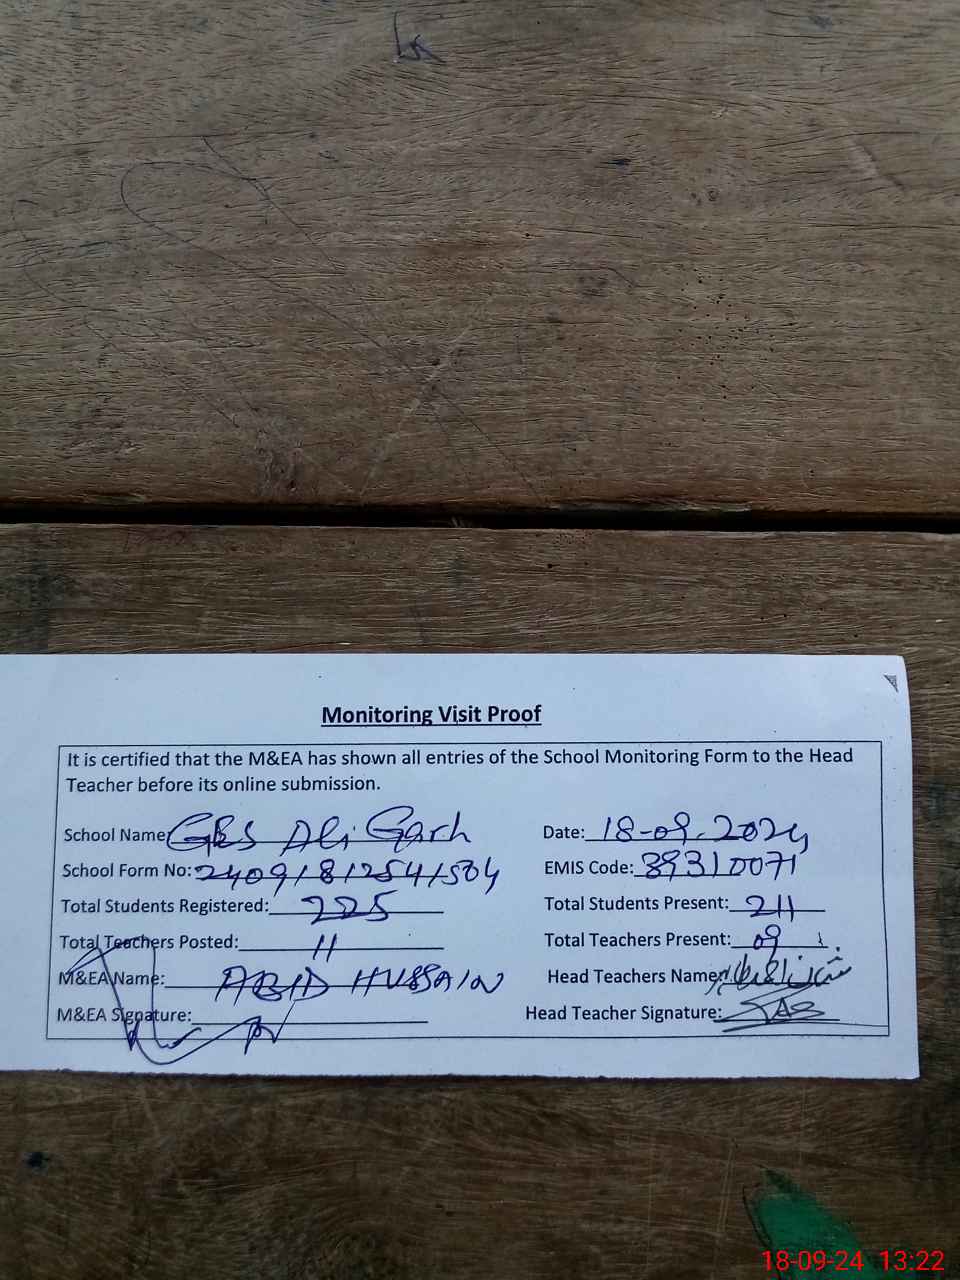 Monitoring Visit Proof
It is certified that the M&EA has shown all entries of the School Monitoring Form to the Head
Teacher before its online submission.
School Name: GES Ali Garh Date: 18-09-2024
School Form No: 24091812541504 EMIS Code: 39310071
Total Students Registered: 225 Total Students Present: 211
Total Teachers Posted: 11 Total Teachers Present: 09
M&EA Name: ABID HUSSAIN Head Teachers Name:
M&EA Signature: Head Teacher Signature:
18-09-24 13:22